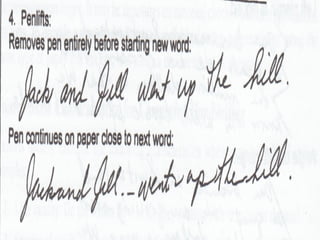 4. Penlifts:
Removes pen entirely before starting new word:
Jack and Jill went up the hill.
Pen continues on paper close to next word:
Jack and Jill. – went up the hill.